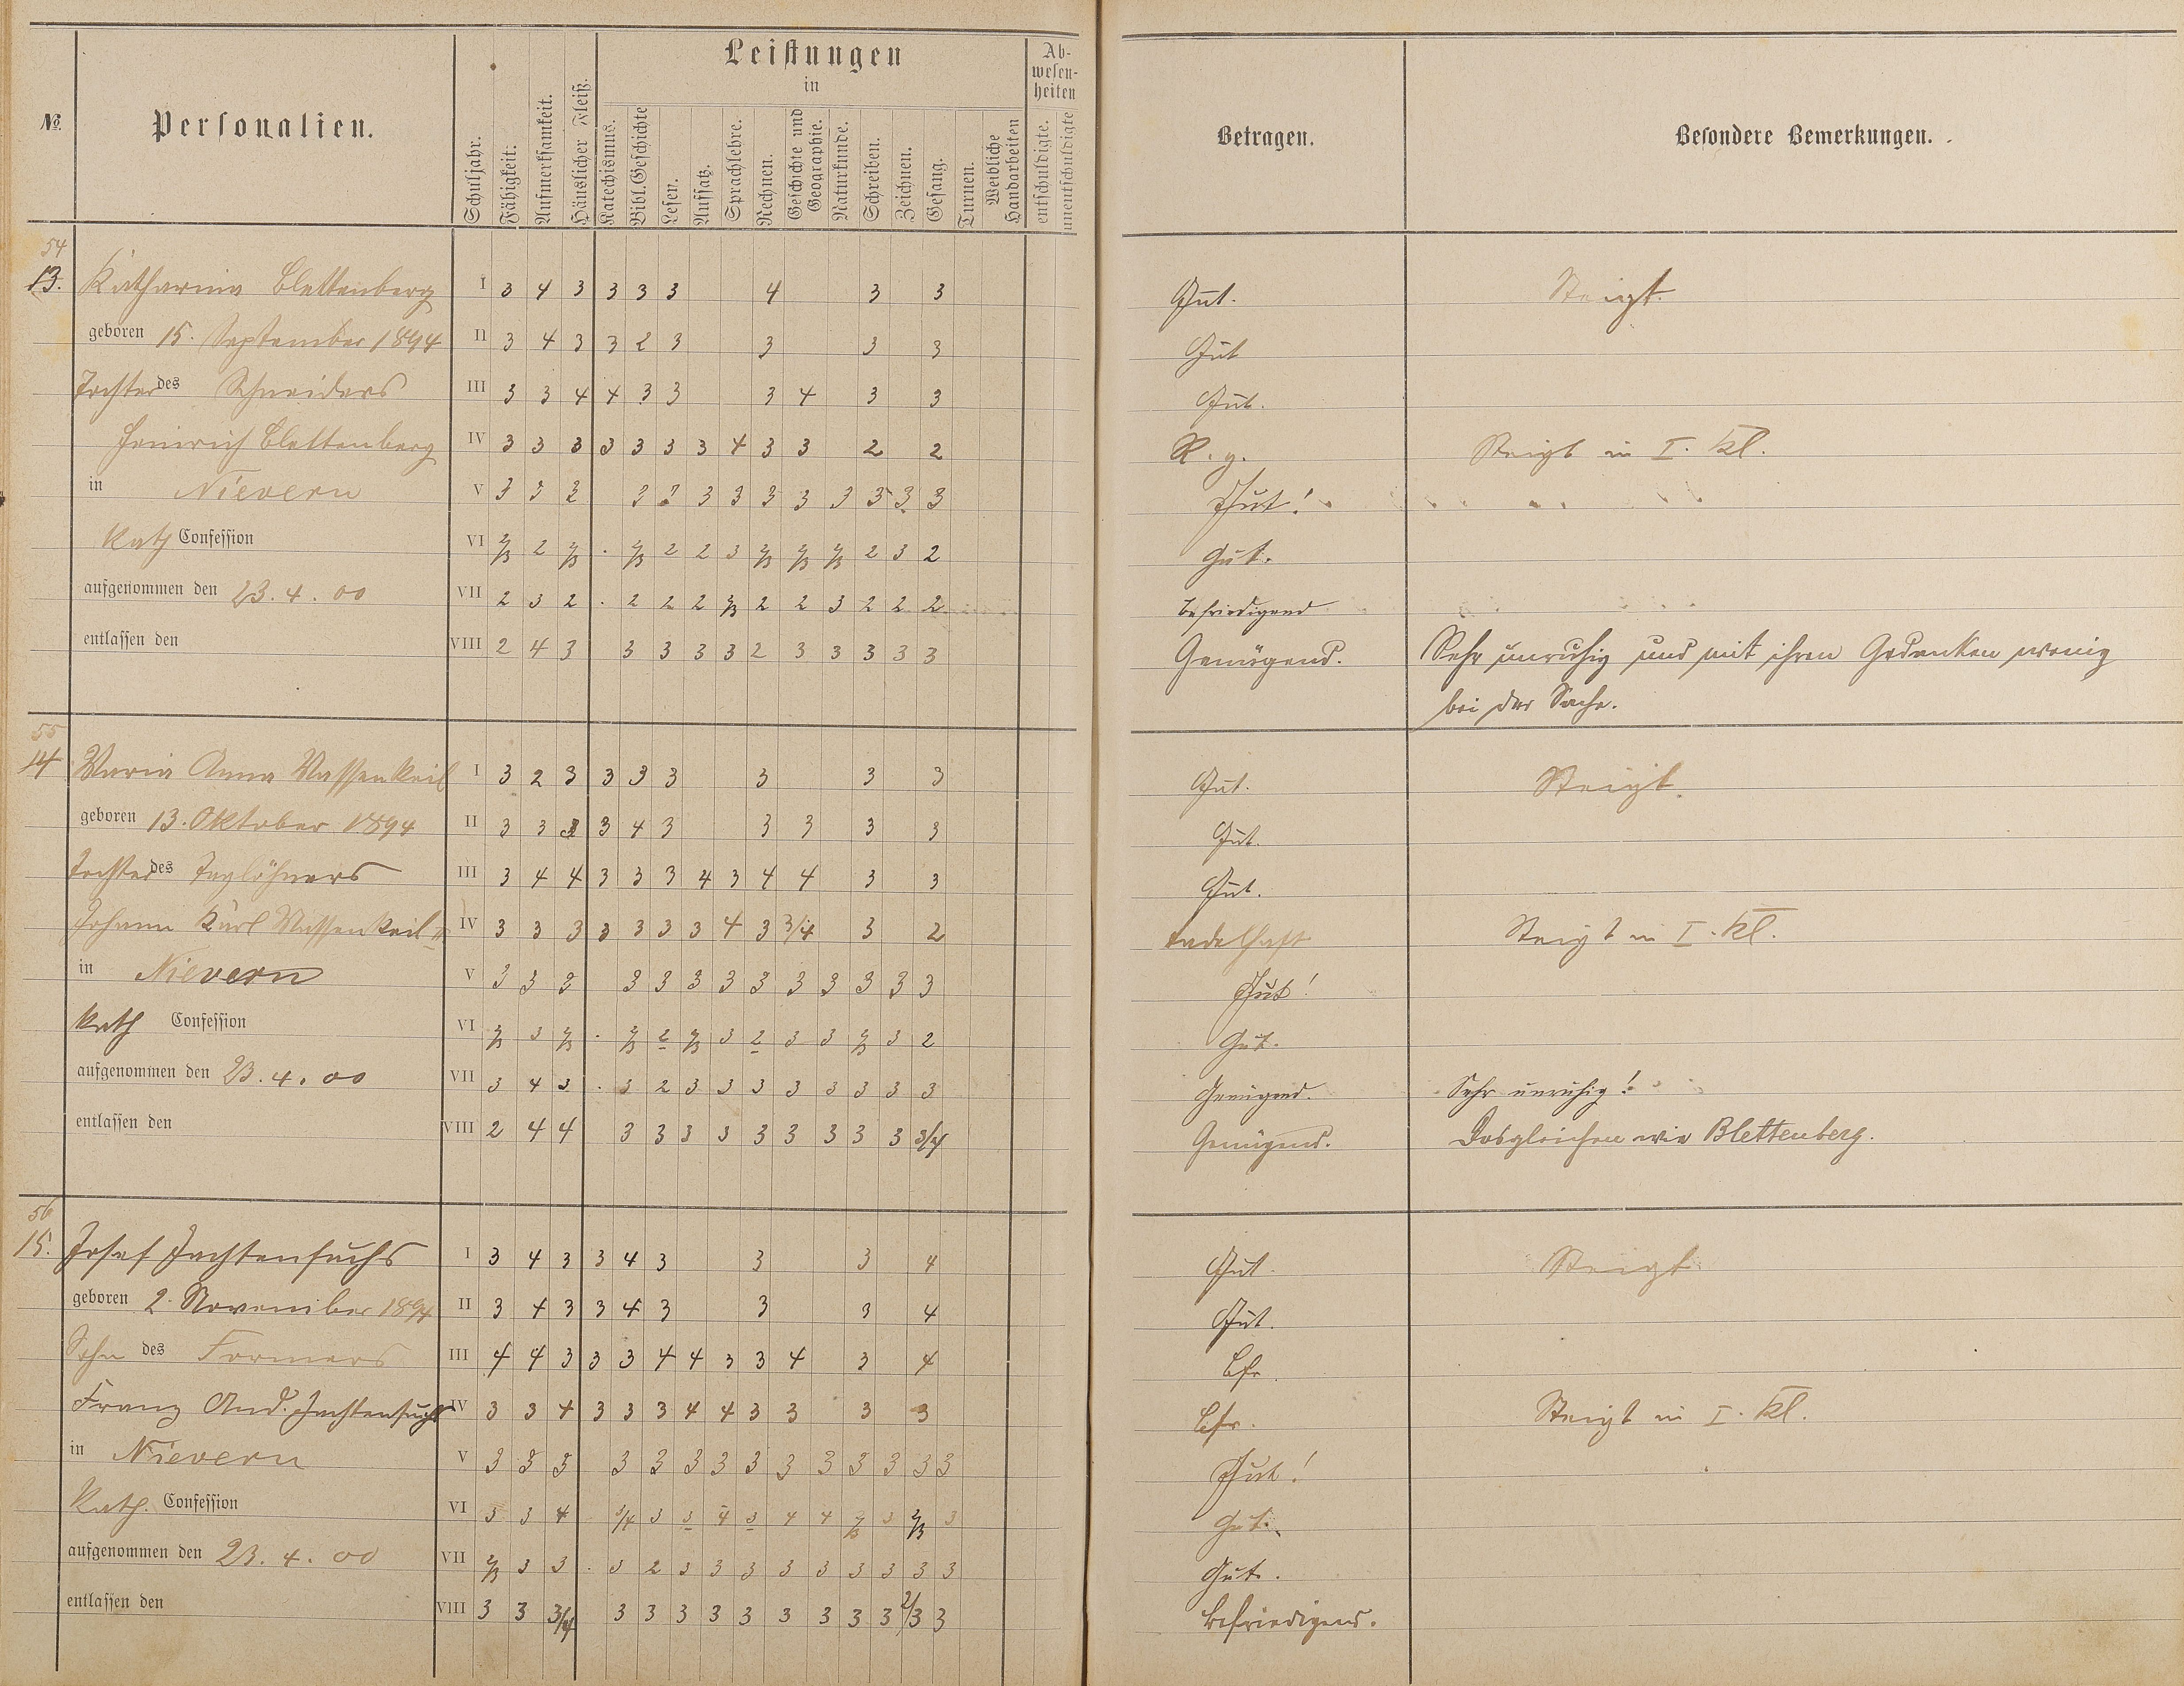 №
Personalien.
Schuljahr.
Fähigkeit.
Aufmerksamkeit.
Häuslicher Fleiß.
Leistungen
in
Katechismus.
Bibl. Geschichte
Lesen.
Aufsatz.
Sprachlehre.
Rechnen.
Geschichte und Geographie.
Naturkunde.
Schreiben.
Zeichnen.
Gesang.
Turnen.
Weibliche Handarbeiten
Ab-
wesen-
heiten
entschuldigte.
unentschuldigte
Betragen.
Besondere Bemerkungen.
54
13. Katharina Blettenberg I 3 4 3 3 3 3 4 3 3 Gut. Steigt.
geboren 15. September 1894 II 3 4 3 3 2 3 3 3 3 Gut
Tochter des Schneiders III 3 3 4 4 3 3 3 4 3 3 Gut.
Heinrich Blettenberg IV 3 3 3 3 3 3 3 4 3 3 2 2 R. g. Steigt in I. Kl.
in Nievern V 3 3 2 3 3 3 3 3 3 3 3 3 3 Gut!
Kath Confession VI 2/3 2 2/3 . 2/3 2 2 3 2/3 2/3 2/3 2 3 2 Gut.
aufgenommen den 23. 4. 00 VII 2 3 2 . 2 2 2 2/3 2 2 3 2 2 2 befriedigend
entlassen den VIII 2 4 3 3 3 3 3 2 3 3 3 3 3 Genügend. Sehr unruhig und mit ihren Gedanken wenig
bei der Sache.
55
14 Maria Anna Massenkeil I 3 2 3 3 3 3 3 3 3 Gut. Steigt.
geboren 13. Oktober 1894 II 3 3 3 3 4 3 3 3 3 3 Gut.
Tochter des Taglöhners III 3 4 4 3 3 3 4 3 4 4 3 3 Gut.
Johann Karl Massenkeil IV 3 3 3 3 3 3 3 4 3 3/4 3 2 tadelhaft Steigt in I. Kl.
in Nievern V 3 3 2 3 3 3 3 3 3 3 3 3 3 Gut!
Kath Confession VI 2/3 3 2/3 . 2/3 2 2/3 3 2 3 3 2/3 3 2 Gut.
aufgenommen den 23. 4. 00 VII 3 4 3 . 3 2 3 3 3 3 3 3 3 3 Genügend. Sehr unruhig!
entlassen den VIII 2 4 4 3 3 3 3 3 3 3 3 3 3/4 Genügend. Desgleichen wie Blettenberg.
56
15. Josef Jachtenfuchs I 3 4 3 3 4 3 3 3 4 Gut. Steigt
geboren 2. November 1894 II 3 4 3 3 4 3 3 3 4 Gut.
Sohn des Formers III 4 4 3 3 3 4 4 3 3 4 3 4 Bfr.
Franz And. Jachtenfuchs IV 3 3 4 3 3 3 4 4 3 3 3 3 Bfr. Steigt in I. Kl.
in Nievern V 3 3 3 3 3 3 3 3 3 3 3 3 3 3 Gut!
Kath. Confession VI 3 3 4 3/4 3 3 4 3 4 4 2/3 3 2/3 3 Gut.
aufgenommen den 23. 4. 00 VII 2/3 3 3 . 3 2 3 3 3 3 3 3 3 3 3 Gut.
entlassen den VIII 3 3 3/4 3 3 3 3 3 3 3 3 3 2/3 3 Befriedigend.